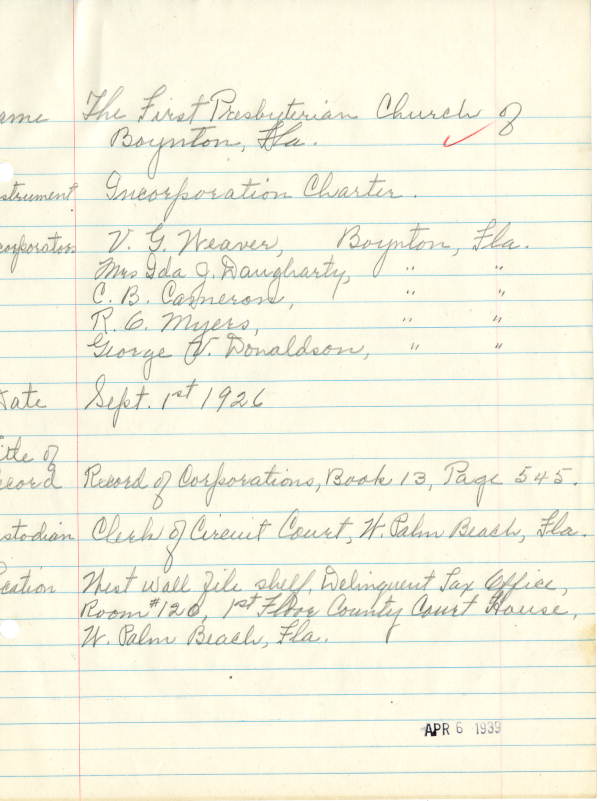 ame The First Presbyterian Church of
Boynton, Fla.
strument Incorporation Charter.
corporators V. G. Weaver, Boynton, Fla.
Mrs Ida J. Daugharty, " "
C. B. Cameron, " "
R. C. Myers, " "
George V. Donaldson, " "
Date Sept. 1st 1926
itle of
ecord Record of Corporations, Book 13, Page 545.
stodian Clerk of Circuit Court, W. Palm Beach, Fla.
ocation West wall file shelf, Delinquent Tax Office,
Room #120, 1st Floor County Court House,
W. Palm Beach, Fla.
APR 6 1939